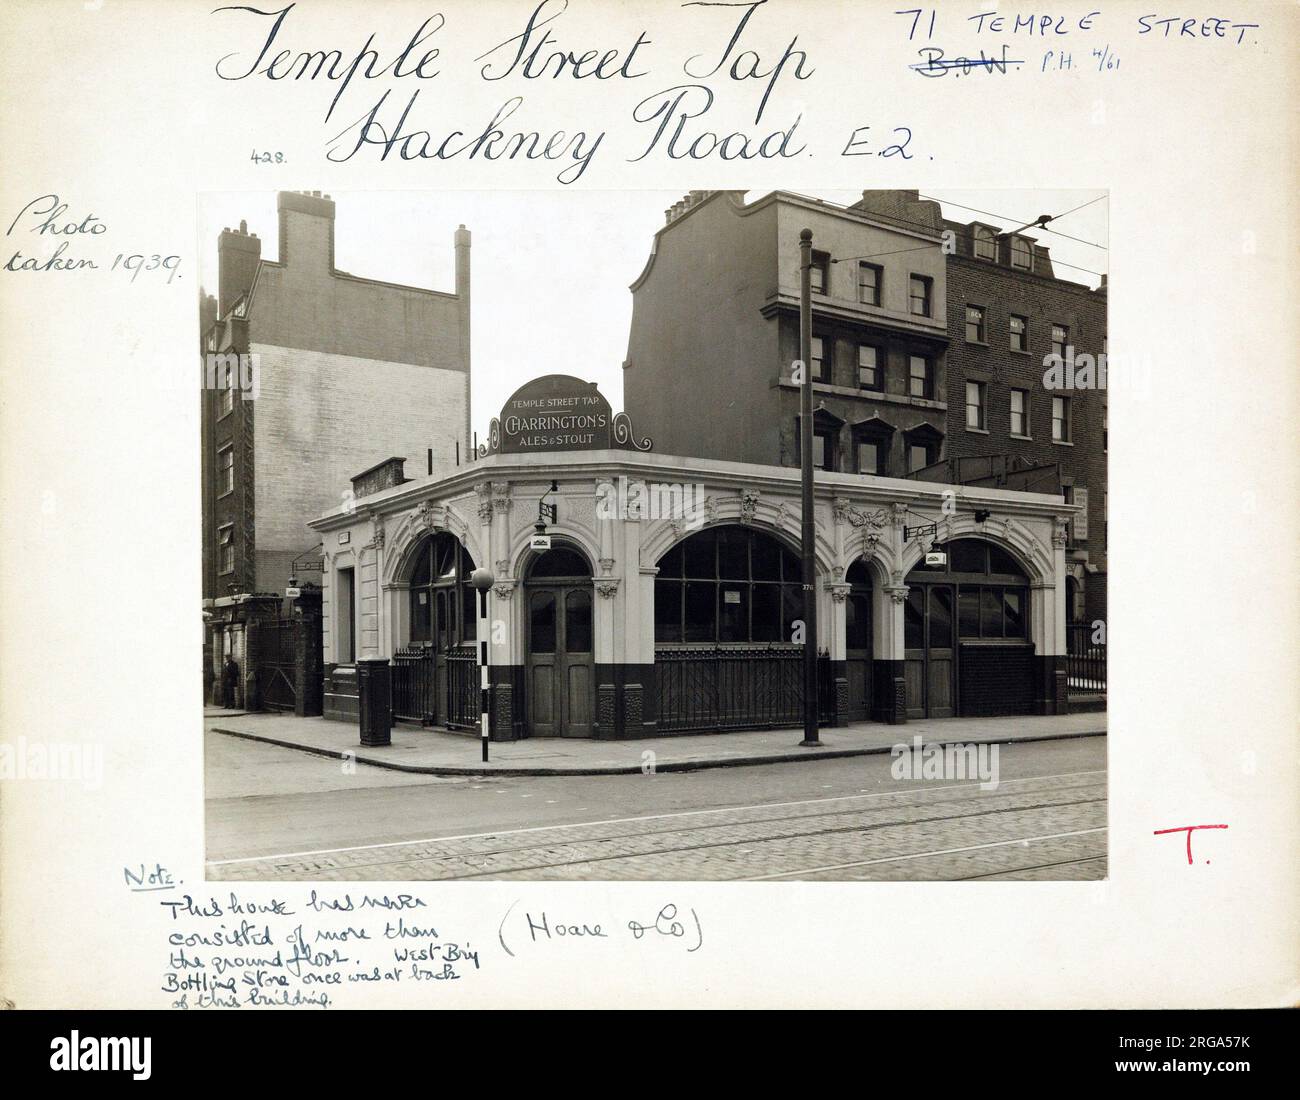 Temple Street Tap
71 TEMPLE STREET.
B.O.W. P.H. 4/61
428. Hackney Road. E.2.
Photo
taken 1939.
TEMPLE STREET TAP
CHARRINGTON'S
ALES & STOUT
376
T.
Note.
This house has never
consisted of more than
the ground floor. West Br'y
Bottling Store once was at back
of this building.
(Hoare & Co)
alamy
alamy
Image ID: 2RGA57K
www.alamy.com